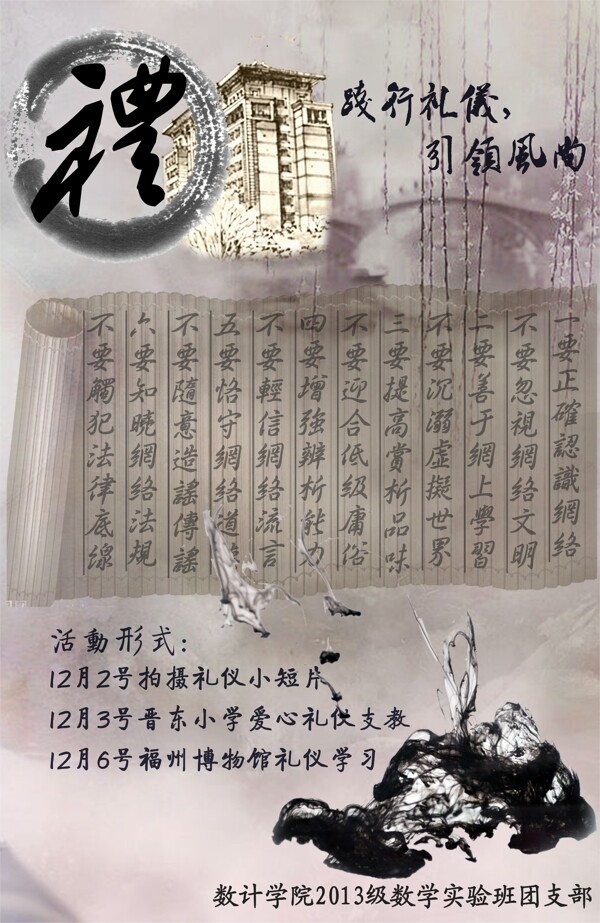 禮
踐行礼儀，
引領風尚
一要正確認識網络
不要忽視網络文明
二要善于網上學習
不要沉溺虛擬世界
三要提高賞析品味
不要迎合低级庸俗
四要增強辨析能力
不要輕信網络流言
五要恪守網络道
不要隨意造謠傳謠
六要知曉網络法規
不要觸犯法律底線
活動形式：
12月2号拍摄礼仪小短片
12月3号晋东小学爱心礼仪支教
12月6号福州博物馆礼仪学习
数计学院2013级数学实验班团支部